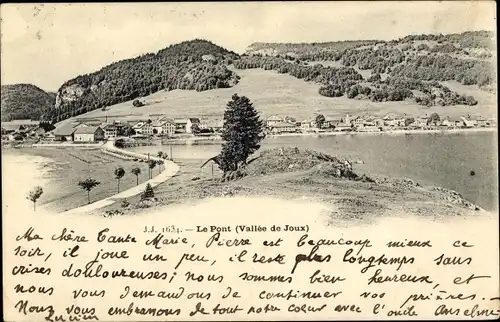 J.J. 1634. Le Pont (Vallée de Joux)
Ma chère Tante Marie, Pierre est Beaucoup mieux ce
soir, il joue un peu, il reste plus longtemps sans
crises douloureuses; nous sommes bien heureux, et
nous vous demandons de continuer vos prières.
Nous vous embranons de tout notre cœur avec l'oncle Anselme
Lucien